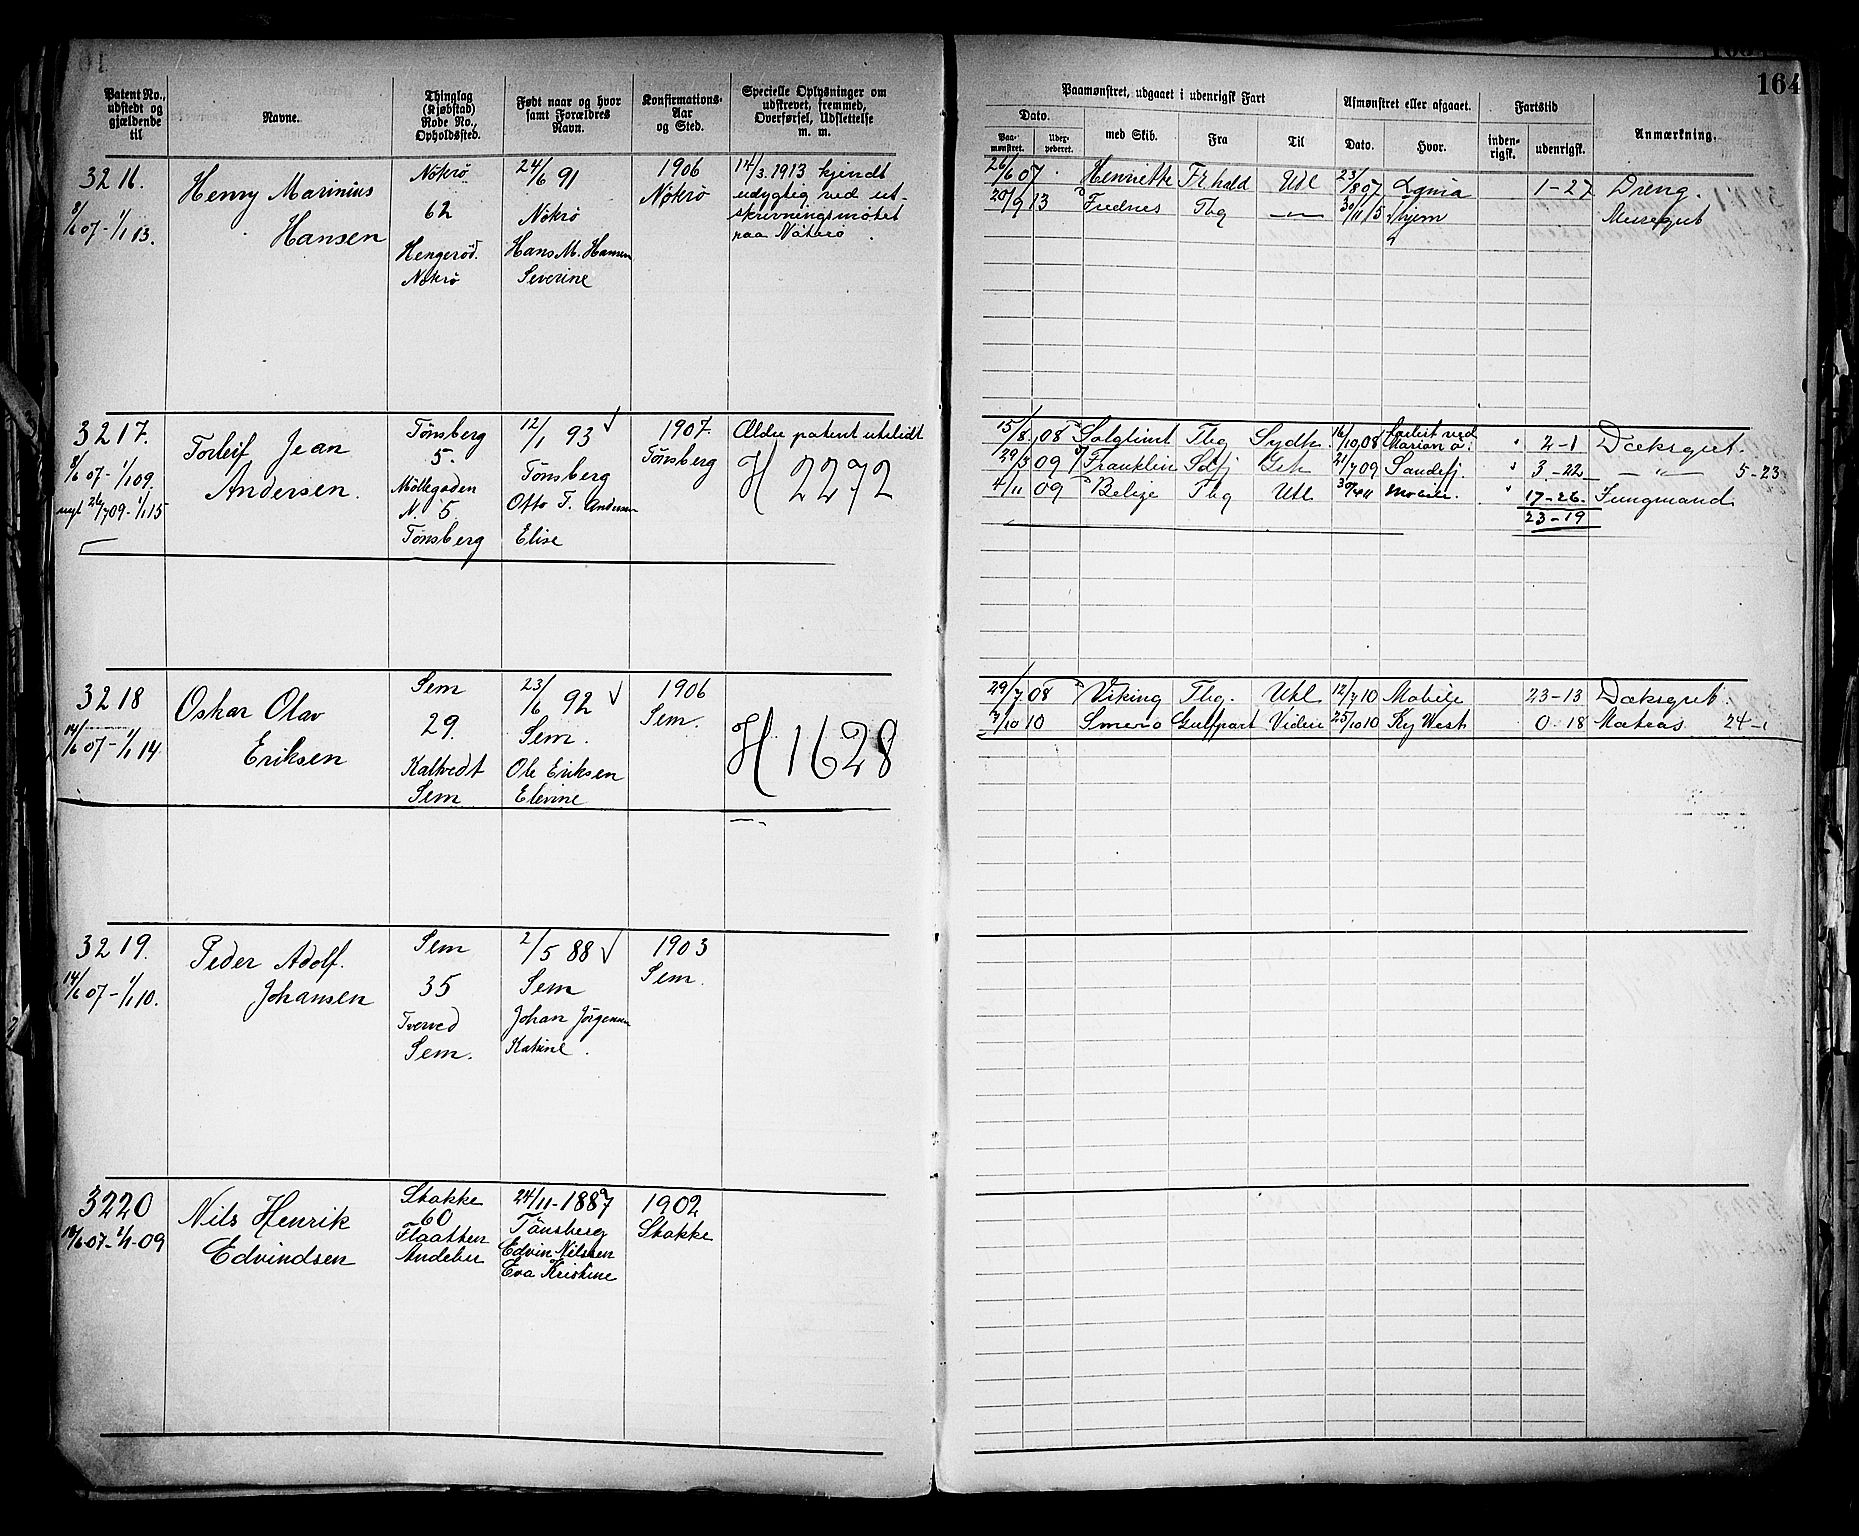 164
Patent No., udstedt og gjældende til
Navne.
Thinglag (Kjøbstad) Rode No., Opholdssted.
Født naar og hvor samt Forældres Navn.
Konfirmations-Aar og Sted.
Specielle Oplysninger om udstrevet, fremmed, Overførsel, Udslettelse m. m.
Paamønstret, udgaaet i udenrigsk Fart
Dato.
Paa-mønstret.
Udex-pederet.
med Skib.
Fra
Til
Afmønstret eller afgaaet.
Dato.
Hvor.
Fartstid
inden-rigsk.
udenrigsk.
Anmærkning.
3216.
8/6 07 - 1/1 13.
Henry Marinius
Hansen
Nøkrø
62
Hengerød.
Nøkrø
24/6 91
Nøkrø
Hans M. Hansen
Severine
1906
Nøkrø
14/3 1913 kjendt
udygtig ved ut-
skrivningsmøtet
paa Nøterø
26/6 07 Henriette Fr.hald Utl 23/8 07 1-27 Dreng.
20/9 13 Frednes Tbg 30/11 15 hjem
3217.
8/6 07 - 1/1 09.
nyt 26/7 09 - 1/1 15
Torleif Jean
Andersen.
Tønsberg
5.
Møllegaden
N. 5
Tønsberg
12/1 93
Tønsberg
Otto T. Andersen
Elise
1907.
Tønsberg
Ældre patent utslidt
H 2272
15/8 08 Solglimt Tbg Sydh. 16/10 08 Forlist ved 2-1 Dæksgut.
29/3 09 Franklin Sdfj Grh 21/7 09 Sandefj. 3-22 — „ — 5-23
4/11 09 Belize Tbg Utl 30/4 11 Mobile. 17-26 Jungmand
23-19
3218
14/6 07 - 1/1 14
Oskar Olav
Eriksen
Sem
29.
Kaltvedt
Sem
23/6 92
Sem.
Ole Eriksen
Elevine
1906
Sem.
H 1628
29/7 08 Viking Tbg. Utl 12/7 10 Mobile 23-13 Dæksgut.
7/10 10 Smero Gulfport 25/10 10 Ky West 0 18 Matros 24-1
3219.
14/6 07 - 1/1 10.
Peder Adolf.
Johansen
Sem
35
Tverved
Sem.
2/5 88
Sem
Johan Jørgensen
Katrine.
1903
Sem.
3220
18/6 07 - 1/1 - 09
Nils Henrik
Edvindsen
Stokke
60
Flaatten
Andebu
24/11 - 1887
Tønsberg
Edvin Nilssen
Eva Kristine
1902
Stokke